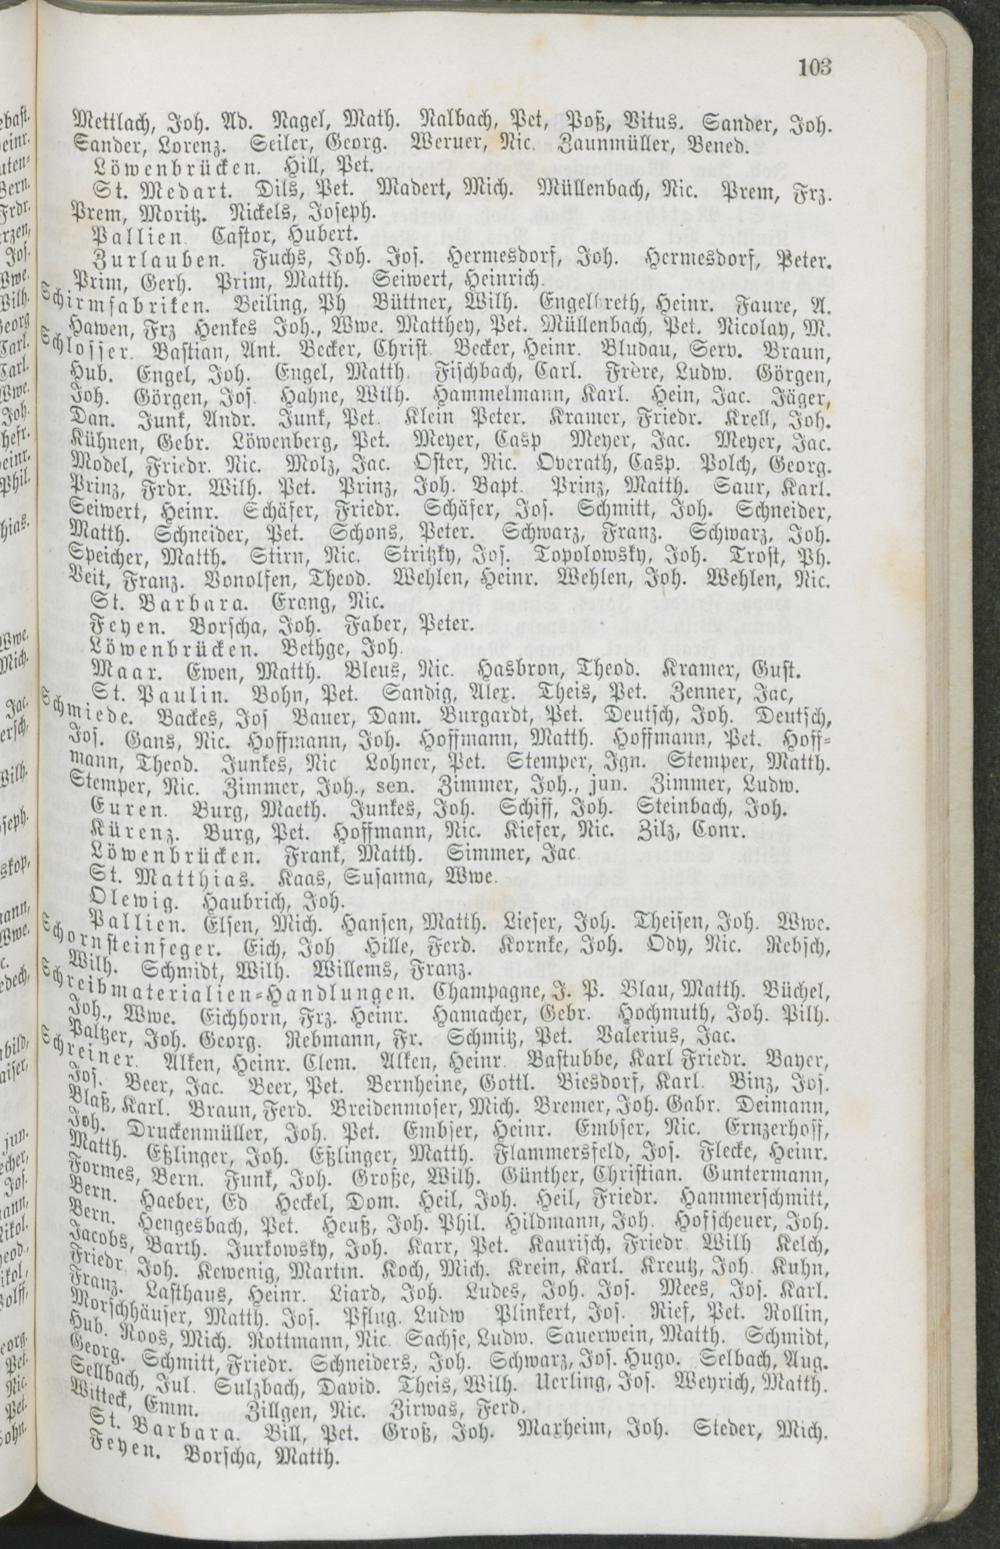 103
Mettlach, Joh. Ad. Nagel, Math. Nalbach, Pet, Poß, Vitus. Sander, Joh.
Sander, Lorenz. Seiler, Georg. Weruer, Nic. Zaunmüller, Bened.
Löwenbrücken. Hill, Pet.
St. Medart. Dils, Pet. Madert, Mich. Müllenbach, Nic. Prem, Frz.
Prem, Moritz. Nickels, Joseph.
Pallien. Castor, Hubert.
Zurlauben. Fuchs, Joh. Jos. Hermesdorf, Joh. Hermesdorf, Peter.
Prim, Gerh. Prim, Matth. Seiwert, Heinrich.
Schirmfabriken. Beiling, Ph Büttner, Wilh. Engelbreth, Heinr. Faure, A.
Hawen, Frz Henkes Joh., Wwe. Matthey, Pet. Müllenbach, Pet. Nicolay, M.
Schlosser. Bastian, Ant. Becker, Christ. Becker, Heinr. Bludau, Serv. Braun,
Hub. Engel, Joh. Engel, Matth. Fischbach, Carl. Frère, Ludw. Görgen,
Joh. Görgen, Jos. Hahne, Wilh. Hammelmann, Karl. Hein, Jac. Jäger,
Dan. Junk, Andr. Junk, Pet. Klein Peter. Kramer, Friedr. Krell, Joh.
Kühnen, Gebr. Löwenberg, Pet. Meyer, Casp Meyer, Jac. Meyer, Jac.
Model, Friedr. Nic. Molz, Jac. Oster, Nic. Overath, Casp. Polch, Georg.
Prinz, Frdr. Wilh. Pet. Prinz, Joh. Bapt. Prinz, Matth. Saur, Karl.
Seiwert, Heinr. Schäfer, Friedr. Schäfer, Jos. Schmitt, Joh. Schneider,
Matth. Schneider, Pet. Schons, Peter. Schwarz, Franz. Schwarz, Joh.
Speicher, Matth. Stirn, Nic. Stritzky, Jos. Topolowsky, Joh. Trost, Ph.
Veit, Franz. Vonolfen, Theod. Wehlen, Heinr. Wehlen, Joh. Wehlen, Nic.
St. Barbara. Erang, Nic.
Feyen. Borscha, Joh. Faber, Peter.
Löwenbrücken. Bethge, Joh.
Maar. Ewen, Matth. Bleus, Nic. Hasbron, Theod. Kramer, Gust.
St. Paulin. Bohn, Pet. Sandig, Alex. Theis, Pet. Zenner, Jac,
Schmiede. Backes, Jos Bauer, Dam. Burgardt, Pet. Deutsch, Joh. Deutsch,
Jos. Gans, Nic. Hoffmann, Joh. Hoffmann, Matth. Hoffmann, Pet. Hoff-
mann, Theod. Junkes, Nic Lohner, Pet. Stemper, Ign. Stemper, Matth.
Stemper, Nic. Zimmer, Joh., sen. Zimmer, Joh., jun. Zimmer, Ludw.
Euren. Burg, Maeth. Junkes, Joh. Schiff, Joh. Steinbach, Joh.
Kürenz. Burg, Pet. Hoffmann, Nic. Kiefer, Nic. Zilz, Conr.
Löwenbrücken. Frank, Matth. Simmer, Jac.
St. Matthias. Kaas, Susanna, Wwe.
Olewig. Haubrich, Joh.
Pallien. Elsen, Mich. Hansen, Matth. Lieser, Joh. Theisen, Joh. Wwe.
Schornsteinfeger. Eich, Joh. Hille, Ferd. Kornke, Joh. Ody, Nic. Rebsch,
Wilh. Schmidt, Wilh. Willems, Franz.
Schreibmaterialien-Handlungen. Champagne, J. P. Blau, Matth. Büchel,
Joh., Wwe. Eichhorn, Frz. Heinr. Hamacher, Gebr. Hochmuth, Joh. Pilh.
Paltzer, Joh. Georg. Rebmann, Fr. Schmitz, Pet. Valerius, Jac.
Schreiner. Alken, Heinr. Clem. Alken, Heinr. Bastubbe, Karl Friedr. Bayer,
Jos. Beer, Jac. Beer, Pet. Bernheine, Gottl. Biesdorf, Karl. Binz, Jos.
Blaß, Karl. Braun, Ferd. Breidenmoser, Mich. Bremer, Joh. Gabr. Deimann,
Joh. Druckenmüller, Joh. Pet. Embser, Heinr. Embser, Nic. Ernzerhoff,
Matth. Eßlinger, Joh. Eßlinger, Matth. Flammersfeld, Jos. Flecke, Heinr.
Formes, Bern. Funk, Joh. Große, Wilh. Günther, Christian. Guntermann,
Bern. Haeber, Ed. Heckel, Dom. Heil, Joh. Heil, Friedr. Hammerschmitt,
Bern. Hengesbach, Pet. Heuß, Joh. Phil. Hildmann, Joh. Hofscheuer, Joh.
Jacobs, Barth. Jurkowsky, Joh. Karr, Pet. Kaurisch, Friedr. Wilh Kelch,
Friedr. Joh. Kewenig, Martin. Koch, Mich. Krein, Karl. Kreutz, Joh. Kuhn,
Franz. Lasthaus, Heinr. Liard, Joh. Ludes, Joh. Jos. Mees, Jos. Karl.
Morschhäuser, Matth. Jos. Pflug. Ludw Plinkert, Jos. Rief, Pet. Rollin,
Hub. Roos, Mich. Rottmann, Nic. Sachse, Ludw. Sauerwein, Matth. Schmidt,
Georg. Schmitt, Friedr. Schneiders, Joh. Schwarz, Jos. Hugo. Selbach, Aug.
Sellbach, Jul. Sulzbach, David. Theis, Wilh. Uerling, Jos. Weyrich, Matth.
Witteck, Emm. Zillgen, Nic. Zirwas, Ferd.
St. Barbara. Bill, Pet. Groß, Joh. Marheim, Joh. Steder, Mich.
Feyen. Borscha, Matth.